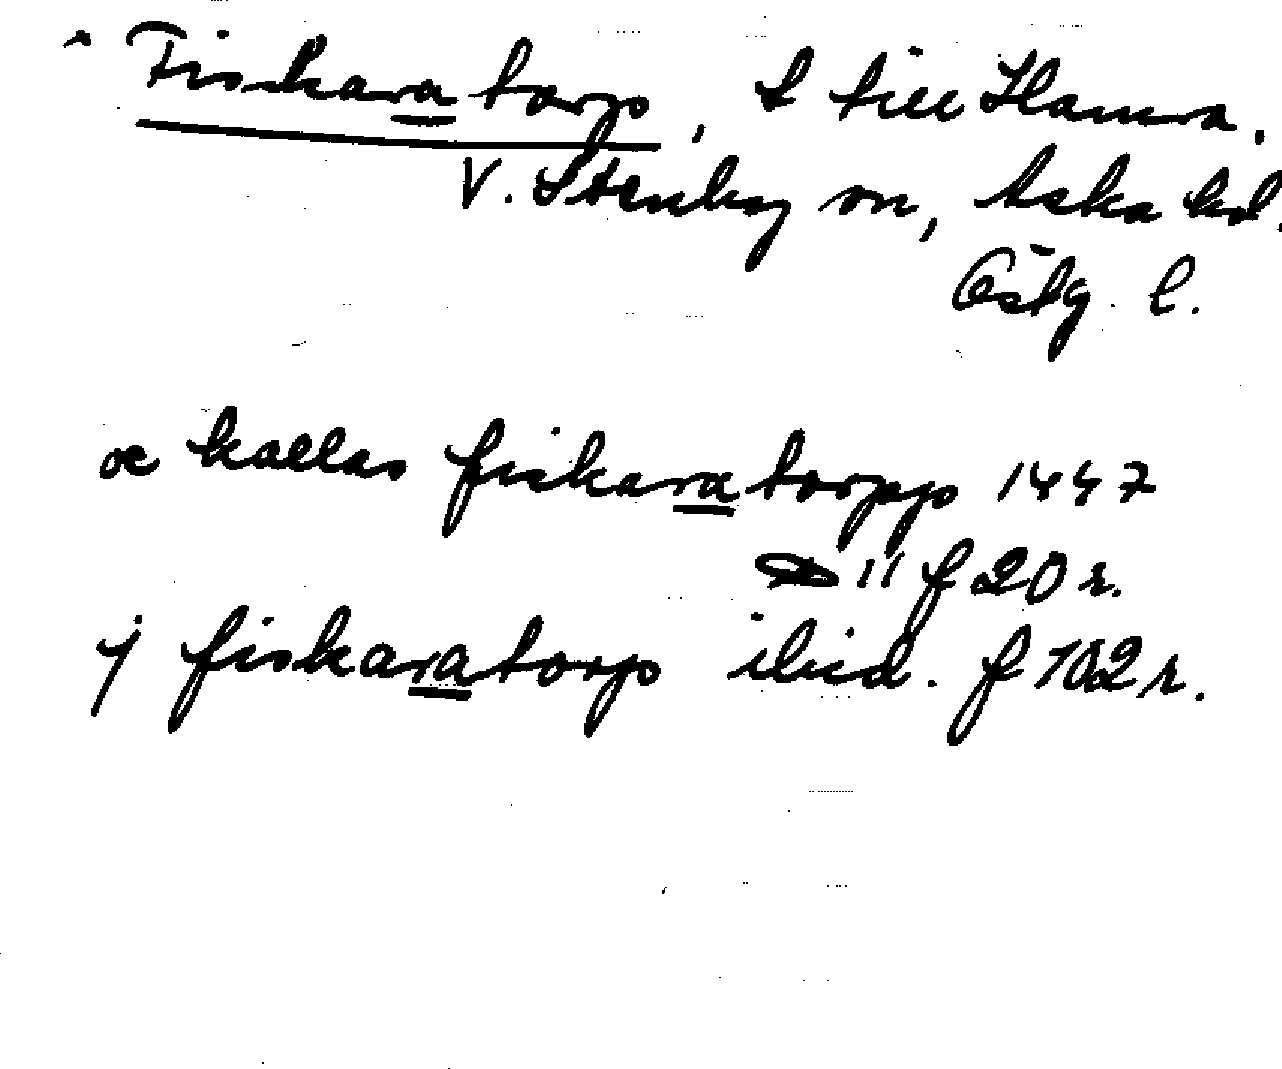 ^ Fiskaratorp, t till Hamra.
V. Stenby sn, Aska hd.
Östg. l.
oc kallas fiskaratorpp 1447
11 f 20 r.
j fiskaratorp ibid. f 102 r.